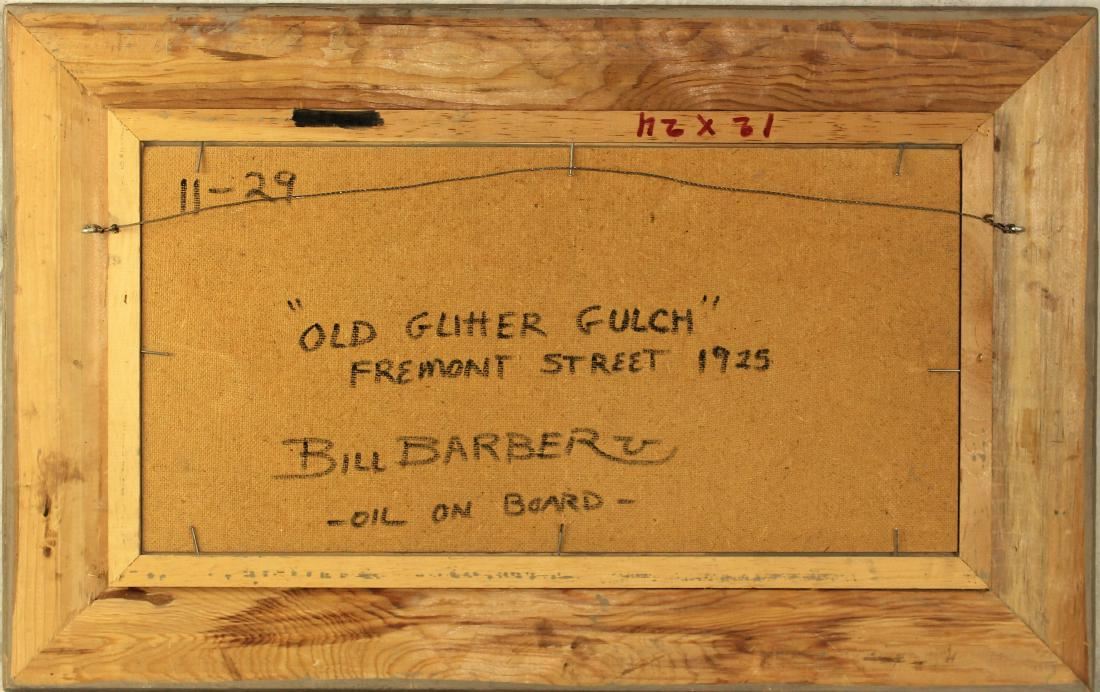 12 X 24
11-29
"OLD GLITTER GULCH"
FREMONT STREET 1925
BILL BARBER
-OIL ON BOARD-